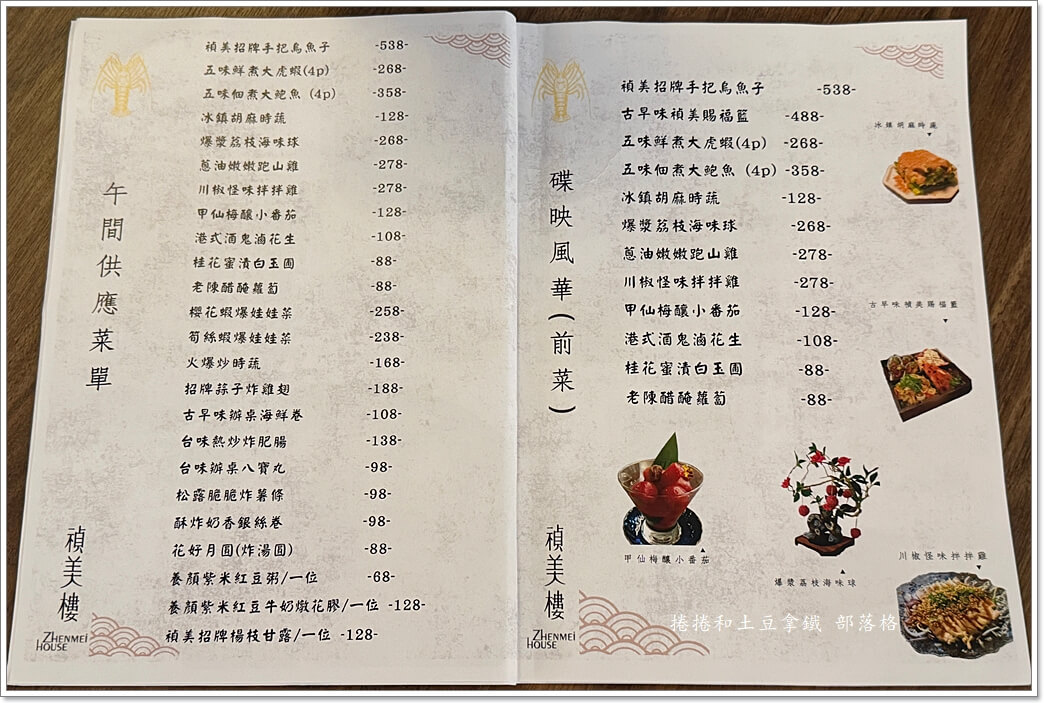 午間供應菜單
禎美招牌手把烏魚子 -538-
五味鮮煮大虎蝦(4p) -268-
五味佃煮大鮑魚 (4p) -358-
冰鎮胡麻時蔬 -128-
爆漿荔枝海味球 -268-
蔥油嫩嫩跑山雞 -278-
川椒怪味拌拌雞 -278-
甲仙梅釀小番茄 -128-
港式酒鬼滷花生 -108-
桂花蜜漬白玉圃 -88-
老陳醋醃蘿蔔 -88-
櫻花蝦爆娃娃菜 -258-
筍絲蝦爆娃娃菜 -238-
火爆炒時蔬 -168-
招牌蒜子炸雞翅 -188-
古早味辦桌海鮮卷 -108-
台味熱炒炸肥腸 -138-
台味辦桌八寶丸 -98-
松露脆脆炸薯條 -98-
酥炸奶香銀絲卷 -98-
花好月圓(炸湯圓) -88-
養顏紫米紅豆粥/一位 -68-
養顏紫米紅豆牛奶燉花膠/一位 -128-
禎美招牌楊枝甘露/一位 -128-
禎美樓
ZHENMEI
HOUSE
碟映風華(前菜)
禎美招牌手把烏魚子 -538-
古早味禎美賜福籃 -488-
五味鮮煮大虎蝦(4p) -268-
五味佃煮大鮑魚 (4p) -358-
冰鎮胡麻時蔬 -128-
爆漿荔枝海味球 -268-
蔥油嫩嫩跑山雞 -278-
川椒怪味拌拌雞 -278-
甲仙梅釀小番茄 -128-
港式酒鬼滷花生 -108-
桂花蜜漬白玉圃 -88-
老陳醋醃蘿蔔 -88-
冰鎮胡麻時蔬
古早味禎美賜福籃
甲仙梅釀小番茄
爆漿荔枝海味球
川椒怪味拌拌雞
禎美樓
ZHENMEI
HOUSE
捲捲和土豆拿鐵 部落格